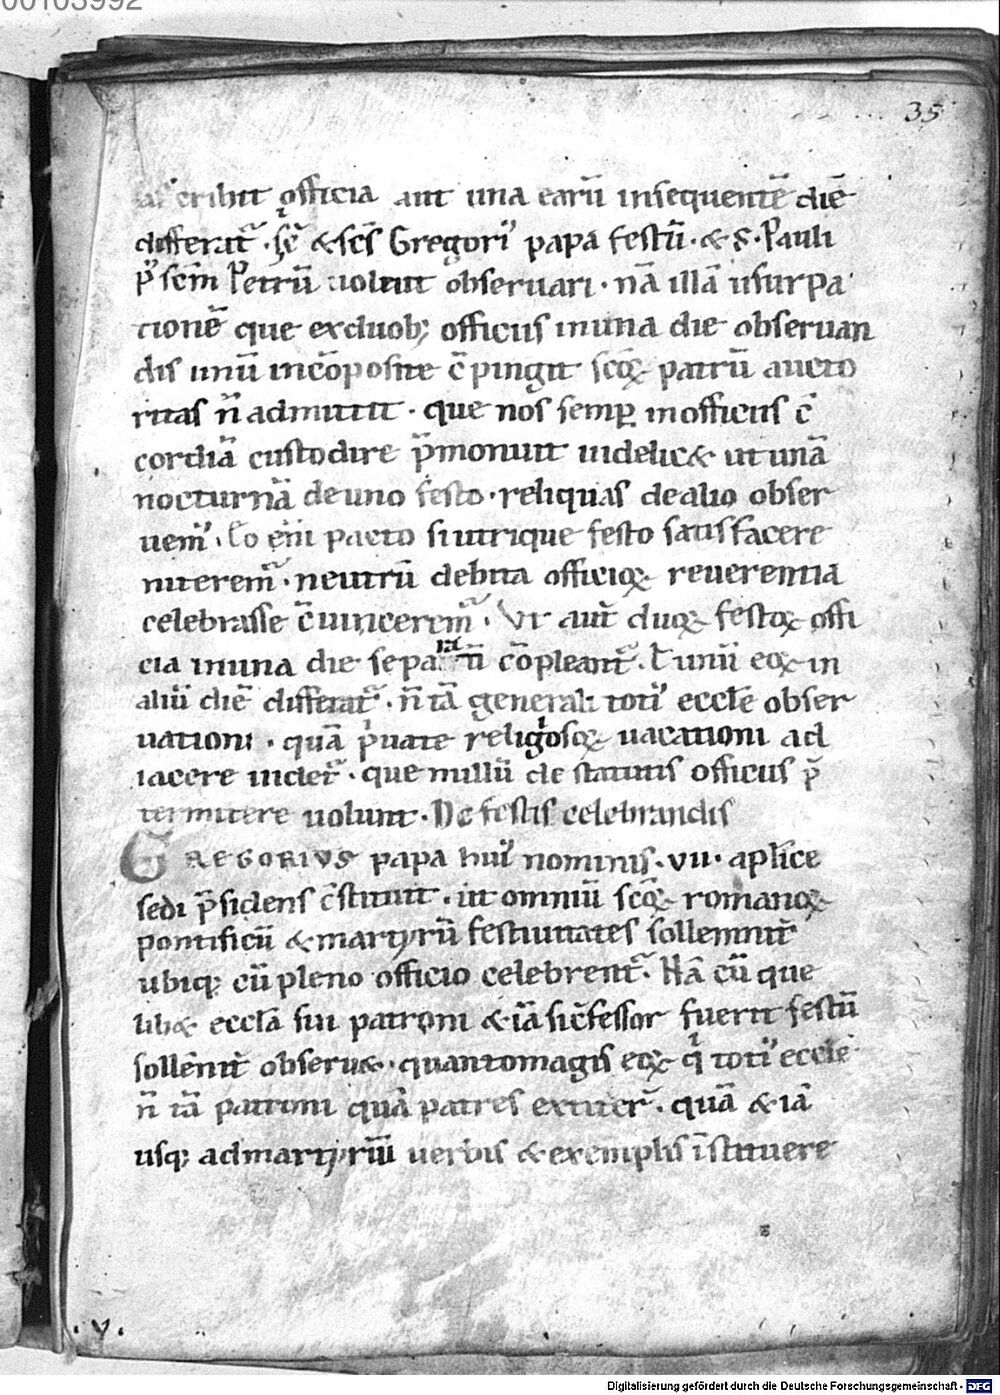 00103992
35
ascribit officia aut una earū insequentē diē
differat᷑ · sc̄ &sc̄s Gregori᷒ papa festū · & S · Pauli
p᷒ scm̄ Petrū uoluit obseruari · nā illā usurpa
tionē que exduob; officiis inuna die obseruan
dis unū incōposite c̄pingit scōꝝ patrū aucto
ritas n̄ admittit · que nos semꝑ inofficiis c̄
cordiā custodire p̄monuit uidelic& ut unā
nocturnā deuno festo · reliquas dealio obser
uem᷒ · Eo eni pacto siutrique festo satisfacere
niterem᷑ · neutrū debita officioꝝ reuerentia
celebrasse c̄uincerem᷑ · Vt aut̄ duoꝝ festoꝝ offi
cia inuna die separatī cōpleant᷑ · ł unū eoꝝ in
aliū diē differat᷑ · n̄ tā generali toti᷒ eccłe obser
uationi · quā pͥuate religiosoꝝ uacationi ad
iacere uidet᷑ · que nullū de statutis officiis p̄
termittere uolunt · De festis celebrandis
GREGORIVS papa hui᷒ nominis · VII · aplice
sedi p̄sidens c̄stituit · ut omniū scōꝝ romanoꝝ
pontificū &martyrū festiuitates sollemnit᷑
ubiq; cū pleno officio celebrent᷑ · Nā cū que
lib& eccłā sui patroni &iā sic̄fessor fuerit festū
sollēnit᷑ obseru& · quantomagis eoꝝ qͥ toti᷒ eccłe
n̄ tā patroni quā patres extiter̄ · quā &iā
usq; admartyriū uerbis &exemplis īstituere
· V ·
Digitalisierung gefördert durch die Deutsche Forschungsgemeinschaft - DFG